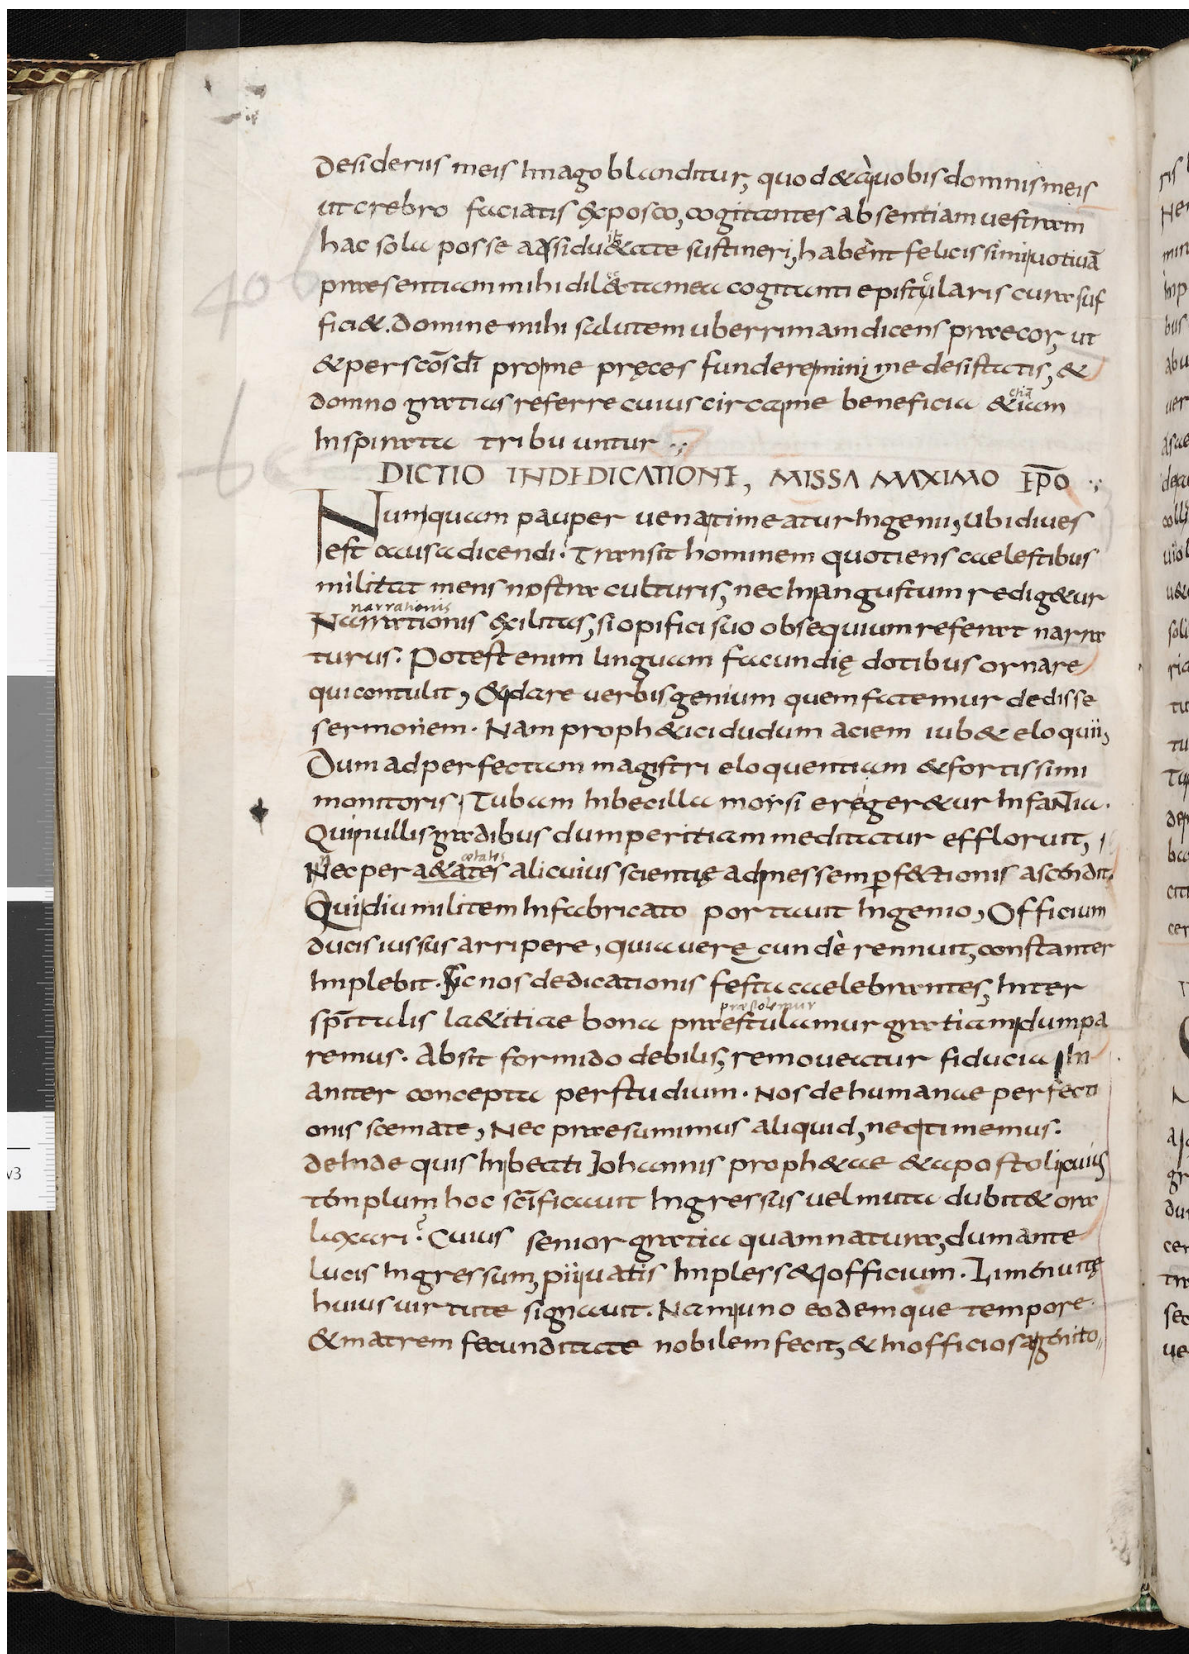 desideriis meis Imago blanditur, quod & a uobis domnis meis
ut crebro faciatis exposco, cogitantes absentiam uestram
hac sola posse assidu&ate sustineri, habent felicissimi uotiuā
praesentiam mihi dil& tamen cogitanti epistularis cura suf
fici&. Domine mihi salutem uberrimam dicens praecor, ut
& per scōs dī pro me pręces fundere minime desistatis, &
domno gratias referre cuius circa me beneficia &iam
Inspirata tribuuntur
DICTIO IN DEDICATIONE, MISSA MAXIMO EP̄O
Numquam pauper uena timeatur Ingenii, ubi diues
est causa dicendi. Transit hominem quotiens caelestibus
militat mens nostra culturis, nec In angustum redig&ur
narrationis
Narrationis exilitas, si opifici suo obsequium referat narra
turus. Potest enim linguam facundię dotibus ornare
qui contulit, & dare uerbis genium quem fatemur dedisse
sermonem. Nam proph&ici dudum aciem iub& eloquii,
Dum ad perfectam magistri eloquentiam & fortissimi
monitoris, Tubam Inbecilla morsi ereger&ur Infantia.
Qui nullis gradibus dum peritiam meditatur effloruit,
aetates
Nec per a&ates alicuius scientię ad messem perf&tionis ascendit,
Qui diu militem Infabricato portauit Ingenio, Officium
ducis iussus arripere, quia uerecunde rennuit, constanter
Implebit. Sic nos dedicationis festa caelebrantes, Inter
praestolemur
sp̄italis la&itiae bona praestulamur gratiam dum pa
remus. Absit formido debilis, remoueatur fiducia In
aniter concepta per studium. Nos de humanae perfecti
onis scemate, Nec praesumimus aliquid, nec timemus.
deInde quis In beati Iohannis proph&ae & apostoli cuius
templum hoc sc̄ificauit Ingressus uel muta dubit& ora
laxari? Cuius senior gratia quam natura, dum ante
lucis Ingressum, pii uatis Imples s& officium. Limen uitę
huius uirtute signauit. Nam uno eodemque tempore
& matrem fecunditate nobilem fecit, & In officiosa genito